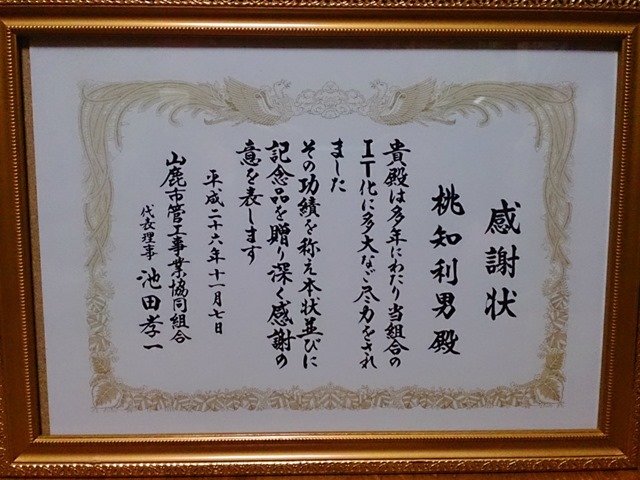 感謝状
桃知利男殿
貴殿は多年にわたり当組合の
IT化に多大なご尽力をされ
ました
その功績を称え本状並びに
記念品を贈り深く感謝の
意を表します
平成二十六年十一月七日
山鹿市管工事業協同組合
代表理事 池田孝一